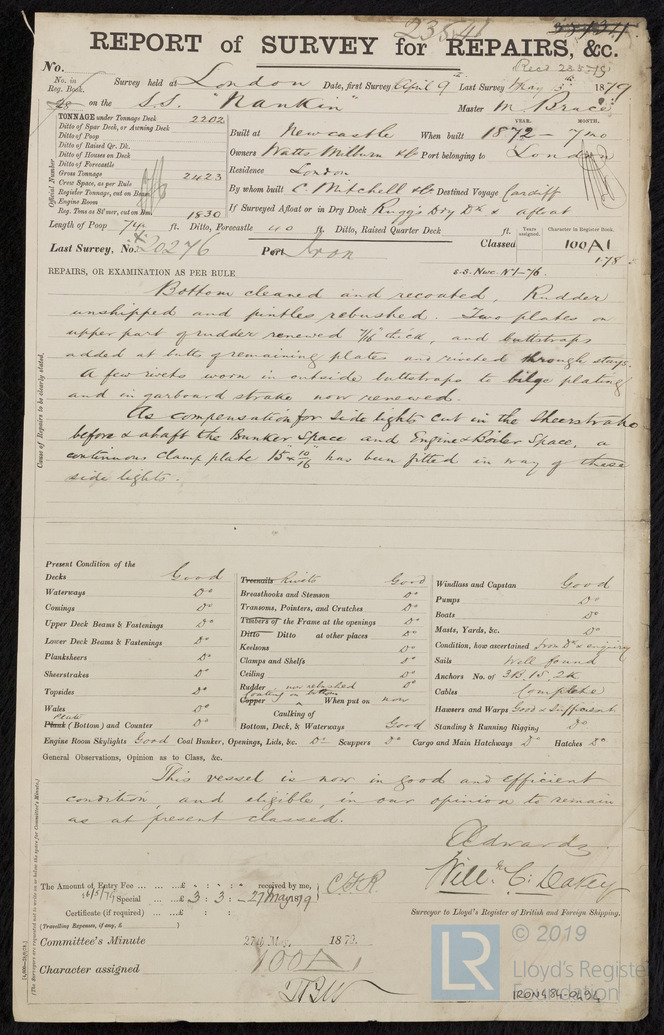 23541
REPORT of SURVEY for REPAIRS, &c.
No.
Recd 23.5.79
No. in Reg. Book. Survey held at London Date, first Survey April 9th Last Survey May 3rd 1879
on the S.S. "Nankin" Master M. Brace
TONNAGE under Tonnage Deck 2202
Ditto of Spar Deck, or Awning Deck
Ditto of Poop
Ditto of Raised Qr. Dk.
Ditto of Houses on Deck
Ditto of Forecastle
Gross Tonnage 2423
Crew Space, as per Rule
Register Tonnage, cut on Beam
Engine Room
Reg. Tons as St'mer, cut on Bm. 1830
Official Number
YEAR. MONTH.
Built at Newcastle When built 1872 - 7 mo
Owners Watts Milburn & Co Port belonging to London
Residence London
By whom built C. Mitchell & Co Destined Voyage Cardiff
If Surveyed Afloat or in Dry Dock Rugg's Dry Dk & afloat
Length of Poop 74 ft. Ditto, Forecastle 40 ft. Ditto, Raised Quarter Deck ft.
Years assigned. Character in Register Book.
Last Survey, No. 20276 Port Iron Classed 100A1
S.S. Nwc. No1-76.
REPAIRS, OR EXAMINATION AS PER RULE
Cause of Repairs to be clearly stated.
Bottom cleaned and recoated, Rudder
unshipped and pintles rebushed. Two plates on
upper part of rudder renewed 7/16" thick, and buttstraps
added at butts of remaining plates and riveted through stays.
A few rivets worn in outside buttstraps to bilge plating
and in garboard strake now renewed.
As compensation for side lights cut in the Sheerstrake
before & abaft the Bunker Space and Engine & Boiler Space, a
continuous clamp plate 15" x 10/16 has been fitted in way of these
side lights.
Present Condition of the
Decks Good
Waterways Do
Comings Do
Upper Deck Beams & Fastenings Do
Lower Deck Beams & Fastenings Do
Planksheers Do
Sheerstrakes Do
Topsides Do
Wales Do
Plate
Plank (Bottom) and Counter Do
Treenails Rivets Good
Breasthooks and Stemson Do
Transoms, Pointers, and Crutches Do
Timbers of the Frame at the openings Do
Ditto Ditto at other places Do
Keelsons Do
Clamps and Shelfs Do
Ceiling Do
Rudder now rebushed Do
Coating on bottom
Copper When put on now
Caulking of
Bottom, Deck, & Waterways Good
Windlass and Capstan Good
Pumps Do
Boats Do
Masts, Yards, &c. Do
Condition, how ascertained from Dk & enquiry
Sails Well found
Anchors No. of 3B, 1S, 2K
Cables Complete
Hawsers and Warps Good & Sufficient
Standing & Running Rigging Do
Engine Room Skylights Good Coal Bunker, Openings, Lids, &c. Do Scuppers Do Cargo and Main Hatchways Do Hatches Do
General Observations, Opinion as to Class, &c.
This vessel is now in good and efficient
condition, and eligible, in our opinion to remain
as at present classed.
Edwards
Will. C. Oakey
Surveyor to Lloyd's Register of British and Foreign Shipping.
The Amount of Entry Fee ... ... £ : : received by me,
16/5/79 Special ... £ 3 : 3 : - 27 May 1879
Certificate (if required) ... £ : :
(Travelling Expenses, if any, £ )
Committee's Minute 27th May 1879.
Character assigned 100A1
(The Surveyors are requested not to write on or below the space for Committee's Minute.)
© 2019
LR
Lloyd's Register
Foundation
IRONS 84-0494